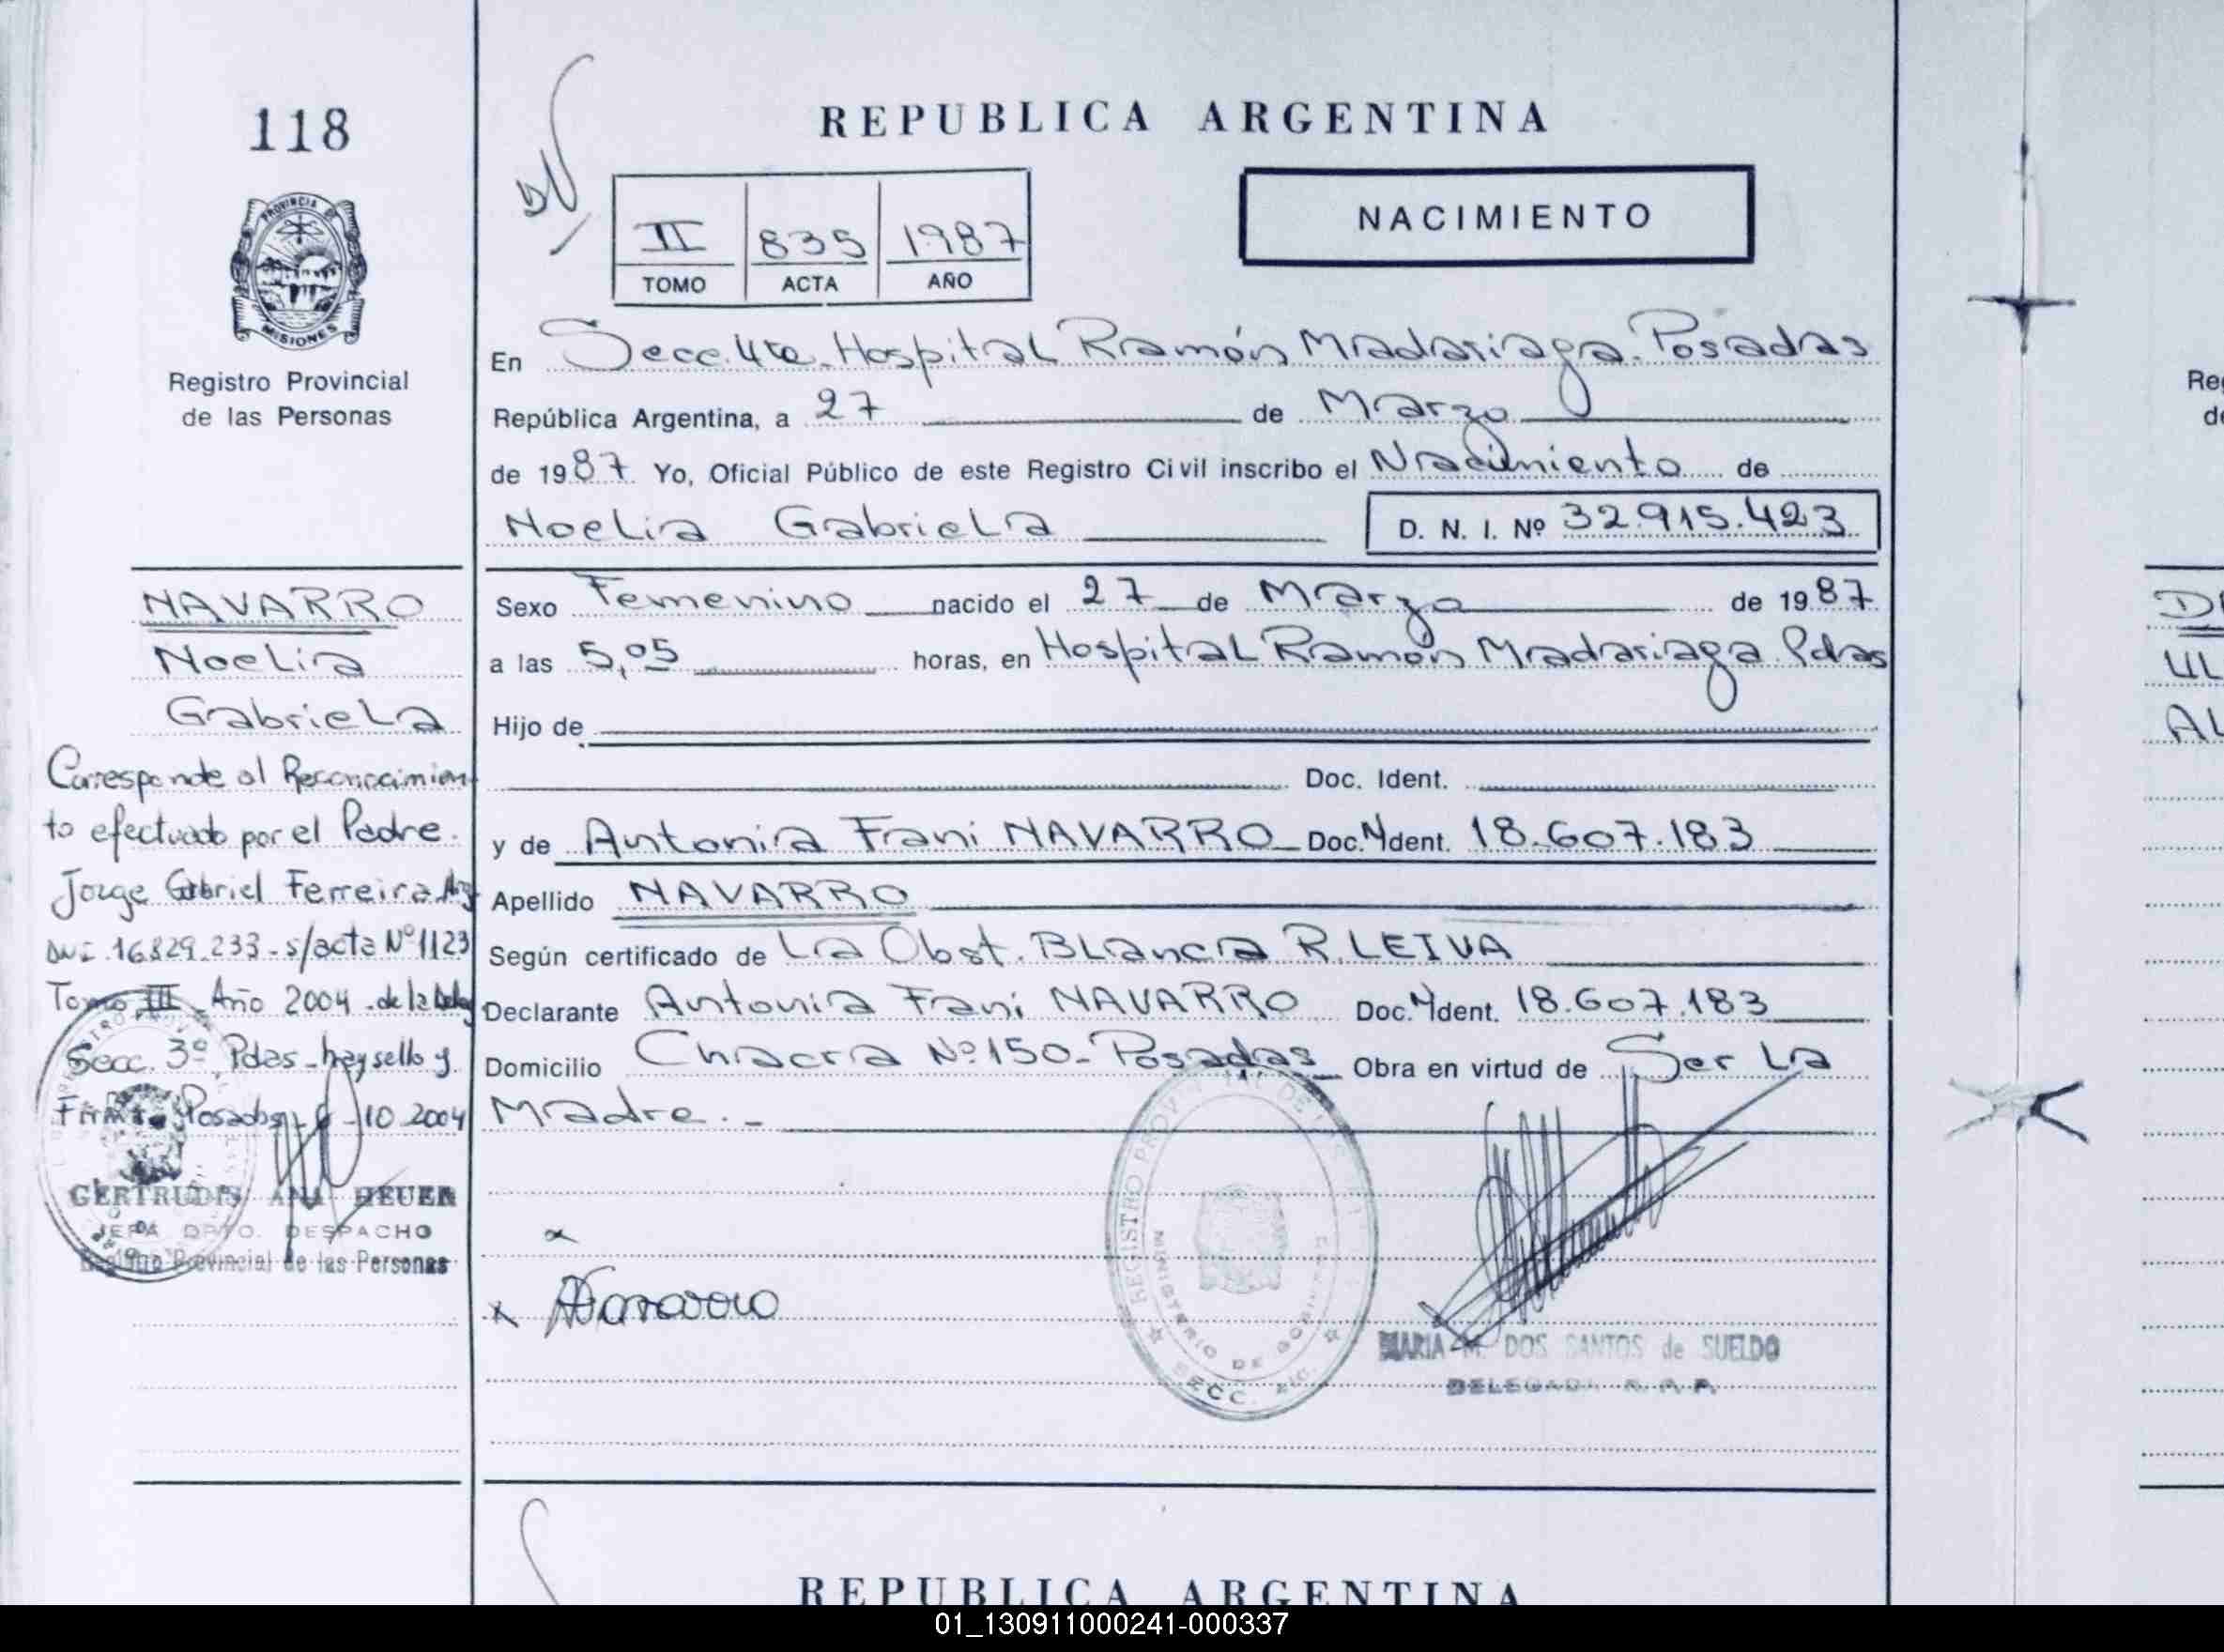 118
PROVINCIA DE
MISIONES
Registro Provincial
de las Personas
NAVARRO
Noelia
Gabriela
Corresponde al Reconocimien
to efectuado por el Padre.
Jorge Gabriel Ferreira Arg
DNI 16.829.233 - s/acta Nº 1123
Tomo III Año 2004 - de la
Secc. 3º, Pdas - hay sello y
Firma. Posadas -10 2004
GERTRUDIS ANA HEUER
JEFA DPTO. DESPACHO
Registro Provincial de las Personas
REPUBLICA ARGENTINA
II 835 1987
TOMO ACTA AÑO
NACIMIENTO
En Secc. 4ta. Hospital Ramón Madariaga. Posadas
República Argentina, a 27 de Marzo
de 1987 Yo, Oficial Público de este Registro Civil inscribo el Nacimiento de
Noelia Gabriela D. N. I. Nº 32.915.423
Sexo Femenino nacido el 27 de Marzo de 1987
a las 5,05 horas, en Hospital Ramón Madariaga Pdas
Hijo de
Doc. Ident.
y de Antonia Frani NAVARRO Doc. Ident. 18.607.183
Apellido NAVARRO
Según certificado de La Obst. Blanca R. LEIVA
Declarante Antonia Frani NAVARRO Doc. Ident. 18.607.183
Domicilio Chacra Nº 150 - Posadas Obra en virtud de Ser La
Madre. -
REGISTRO
MINISTERIO DE
SECC.
MARIA M. DOS SANTOS de SUELDO
DELEGADA R. P. P.
REPUBLICA ARGENTINA
01_130911000241-000337